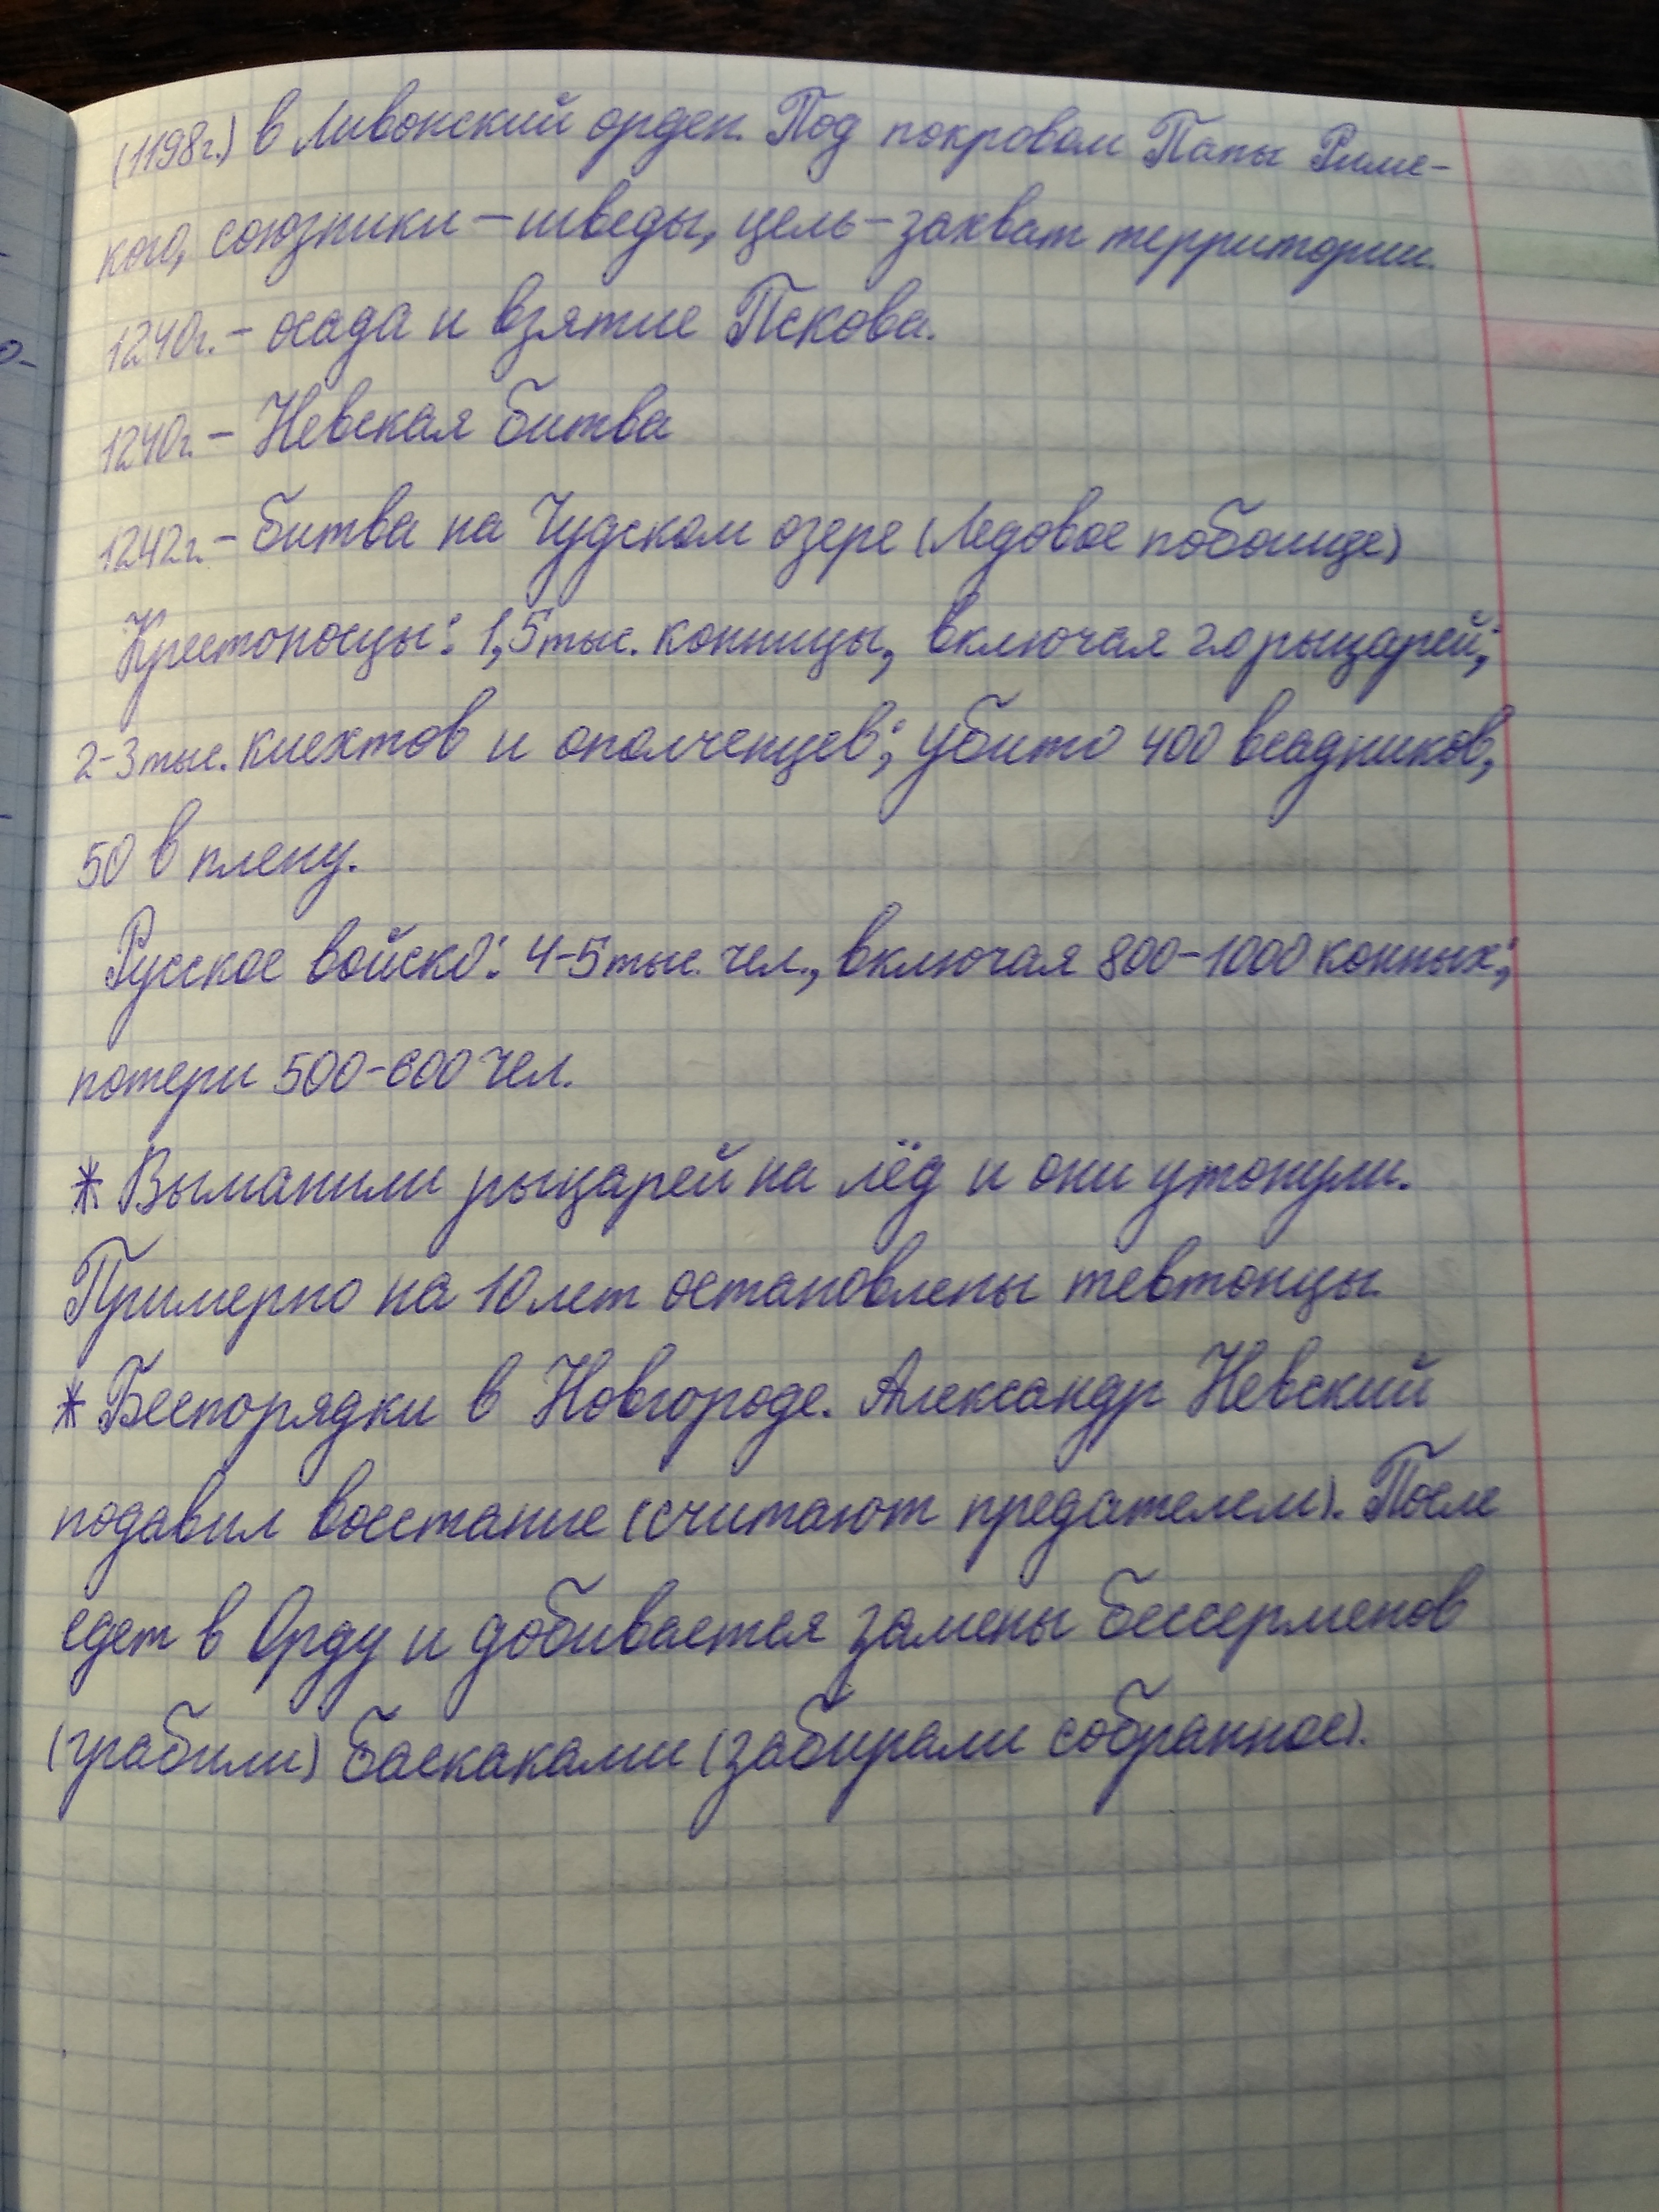 (1198г.) в Ливонский орден. Под покровом Папы Римс-
кого, союзники – шведы, цель – захват территории.
1240г. – осада и взятие Пскова.
1240г. – Невская битва
1242г. – битва на Чудском озере (Ледовое побоище)
Крестоносцы: 1,5 тыс. конницы, включая рыцарей;
2-3 тыс. кнехтов и ополченцев; убито 400 всадников,
50 в плену.
Русское войско: 4-5 тыс. чел., включая 800-1000 конных;
потери 500-600 чел.
* Выманили рыцарей на лёд и они утонули.
Примерно на 10 лет остановлены тевтонцы.
* Беспорядки в Новгороде. Александр Невский
подавил восстание (считают предателем). После
едет в Орду и добивается замены бессерменов
(грабили) баскаками (забирали собранное).